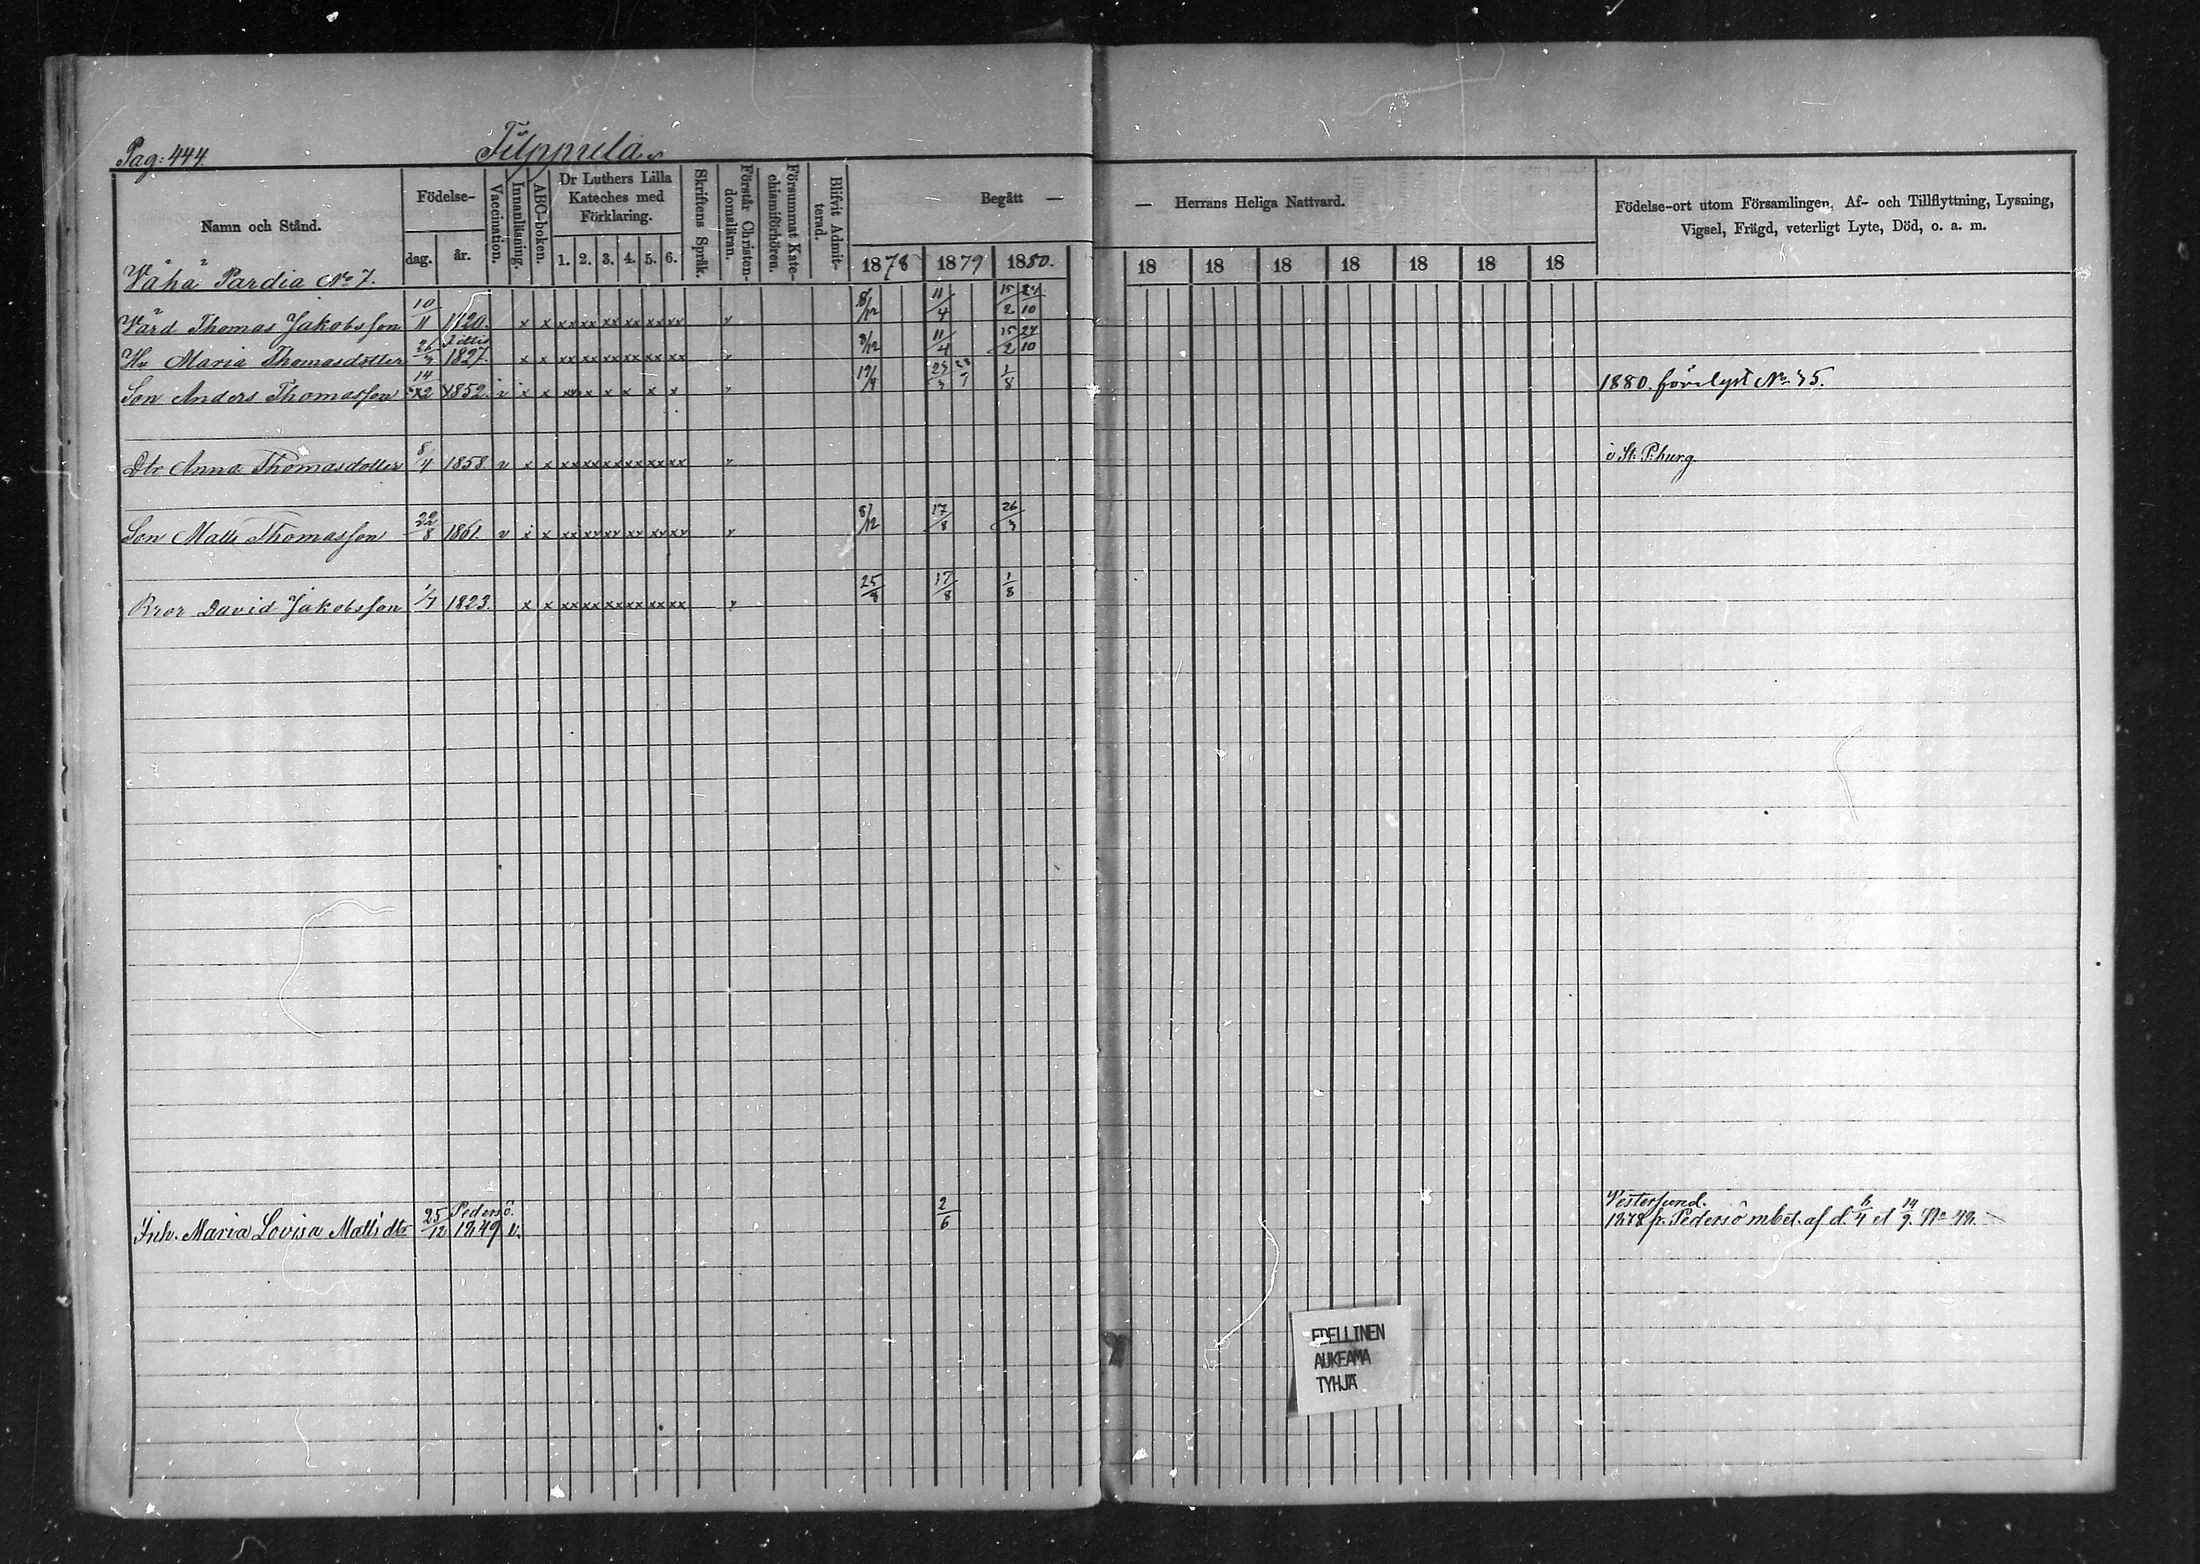 Pag: 444.
Filppula.
Namn och Stånd.
Födelse-
dag.
år.
Vaccination.
Innanläsning.
ABC-boken.
Dr Luthers Lilla
Kateches med
Förklaring.
1. 2. 3. 4. 5. 6.
Skriftens Språk.
Förstår Christen-
domsläran.
Försummat Kate-
chismiförhören.
Blifvit Admit-
terad.
Begått —
— Herrans Heliga Nattvard.
1878 1879 1880.
18 18 18 18 18 18 18
Födelse-ort utom Församlingen, Af- och Tillflyttning, Lysning,
Vigsel, Frägd, veterligt Lyte, Död, o. a. m.
Vähä Pardia No 7.
Vård Thomas Jakobsson 10/11 1820. x x xx xx xx xx xx xx 8/12 11/4 15/2 24/10
Hu Maria Thomasdotter 26/3 1827. x x xx xx xx xx xx xx 8/12 11/4 15/2 24/10
Son Anders Thomasson 14/12 1852. v x x 1/8 1880. förelyst No 35.
Dtr Anna Thomasdotter 8/4 1858. v x x xx xx xx xx xx xx i St. P.burg
Son Matts Thomasson 8 1861. v x x 8/12 17/8 26/3
Bror David Jakobsson 1/7 1823. x x xx xx xx xx xx xx 25/8 17/8 1/8
Pedersö. Vestersund.
Inh. Maria Lovisa Matts dtr 25/12 1849 v. 2/6 1878 fr. Pedersö m bet. af d. 6/4 et 14/9. No 42.
EDELLINEN
AUKEAMA
TYHJÄ